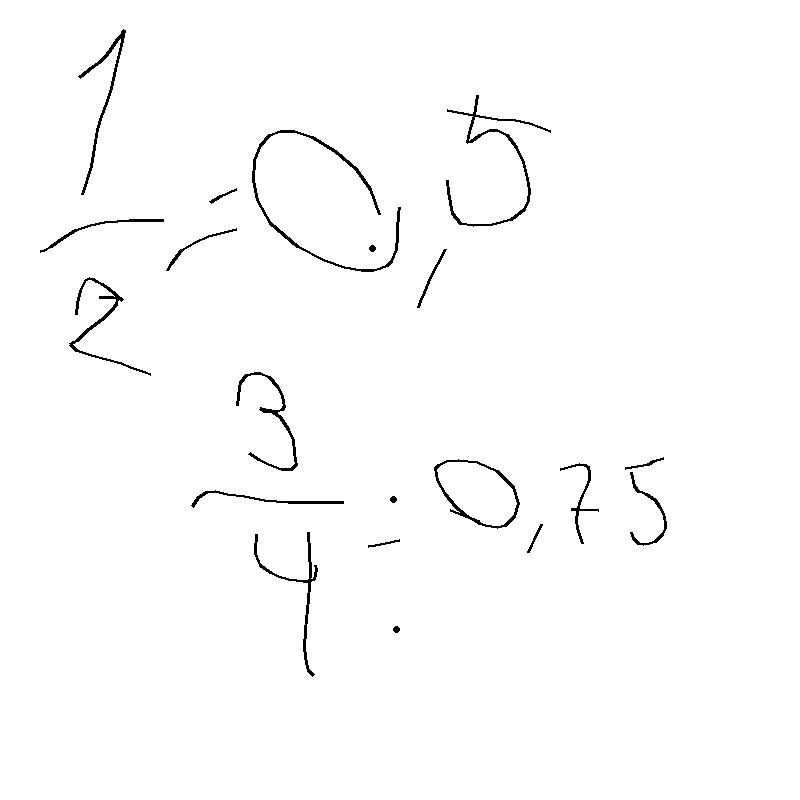 1/2 = 0,5
3/4 = 0,75